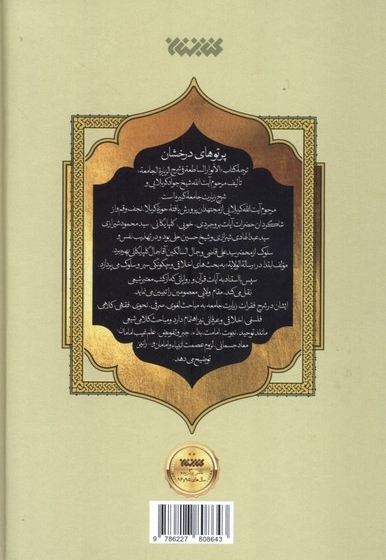 کتابستان
پرتوهای درخشان
ترجمهٔ کتاب «الأنوار الساطعة فی شرح الزیارة الجامعة»
تألیف مرحوم آیت‌الله شیخ جواد کربلایی و
شرح زیارت جامعه کبیره است
مرحوم آیت‌الله کربلایی از مجتهدین پرورش یافتهٔ حوزهٔ کربلا، نجف و قم و از
شاگردان حضرات آیات بروجردی، خویی، گلپایگانی، سید محمود شیرازی
سید عبدالهادی شیرازی و شیخ حسین حلی بود و در تهذیب نفس و
سلوک از محضر سید علی قاضی و جمال السالکین آقا جمال گلپایگانی بهره برد.
مؤلف ابتدا در رسالهٔ الولایة، به مبحث‌های اخلاقی و چگونگی سیر و سلوک می‌پردازد
سپس با استفاده از آیات قرآن و روایاتی که از کتب معتبر شیعی
نقل می‌کند، مقام ولایی معصومین را تبیین می‌نماید.
ایشان در شرح فقرات زیارت جامعه به مباحث لغوی، صرفی، نحوی، فقهی، کلامی
فلسفی، اخلاقی و عرفانی نیز اهتمام دارد و مباحث کلامی شیعی
مانند توحید، نبوت، امامت، بداء، جبر و تفویض، علم غیب امامان،
معاد جسمانی، لزوم عصمت انبیاء و امامان و... را نیز
توضیح می‌دهد.
9 786227 808643